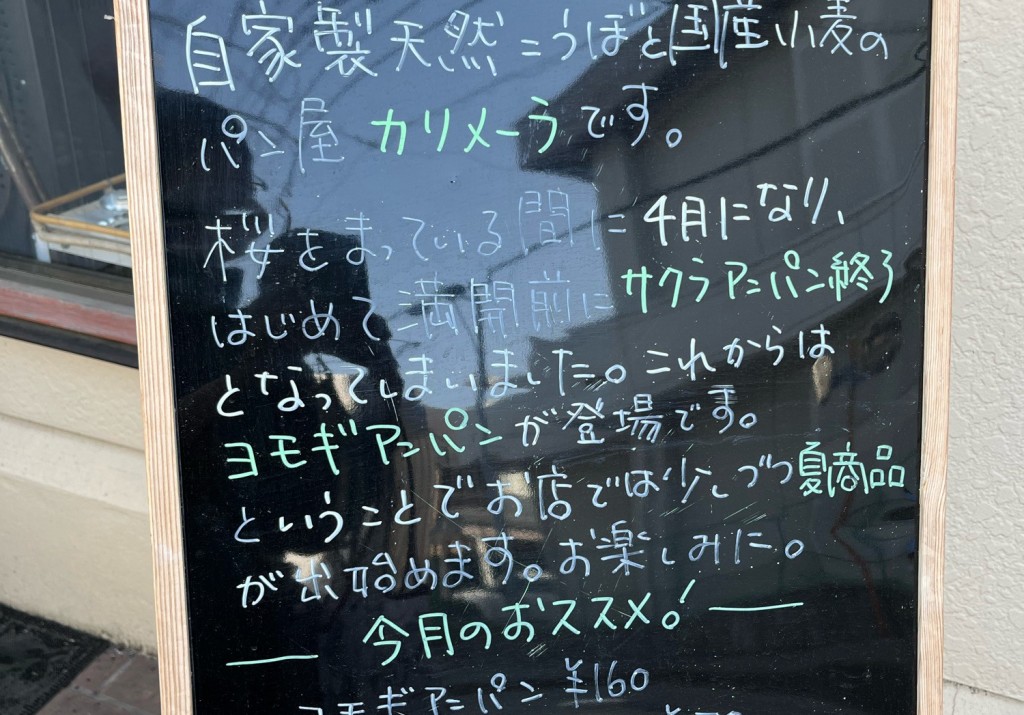 自家製天然こうぼと国産小麦の
パン屋 カリメーラです。
桜をまっている間に4月になり、
はじめて満開前にサクラアンパン終了
となってしまいました。これからは
ヨモギアンパンが登場です。
ということでお店では少しづつ夏商品
が出始めます。お楽しみに。
今月のおススメ!
ヨモギアンパン ¥160